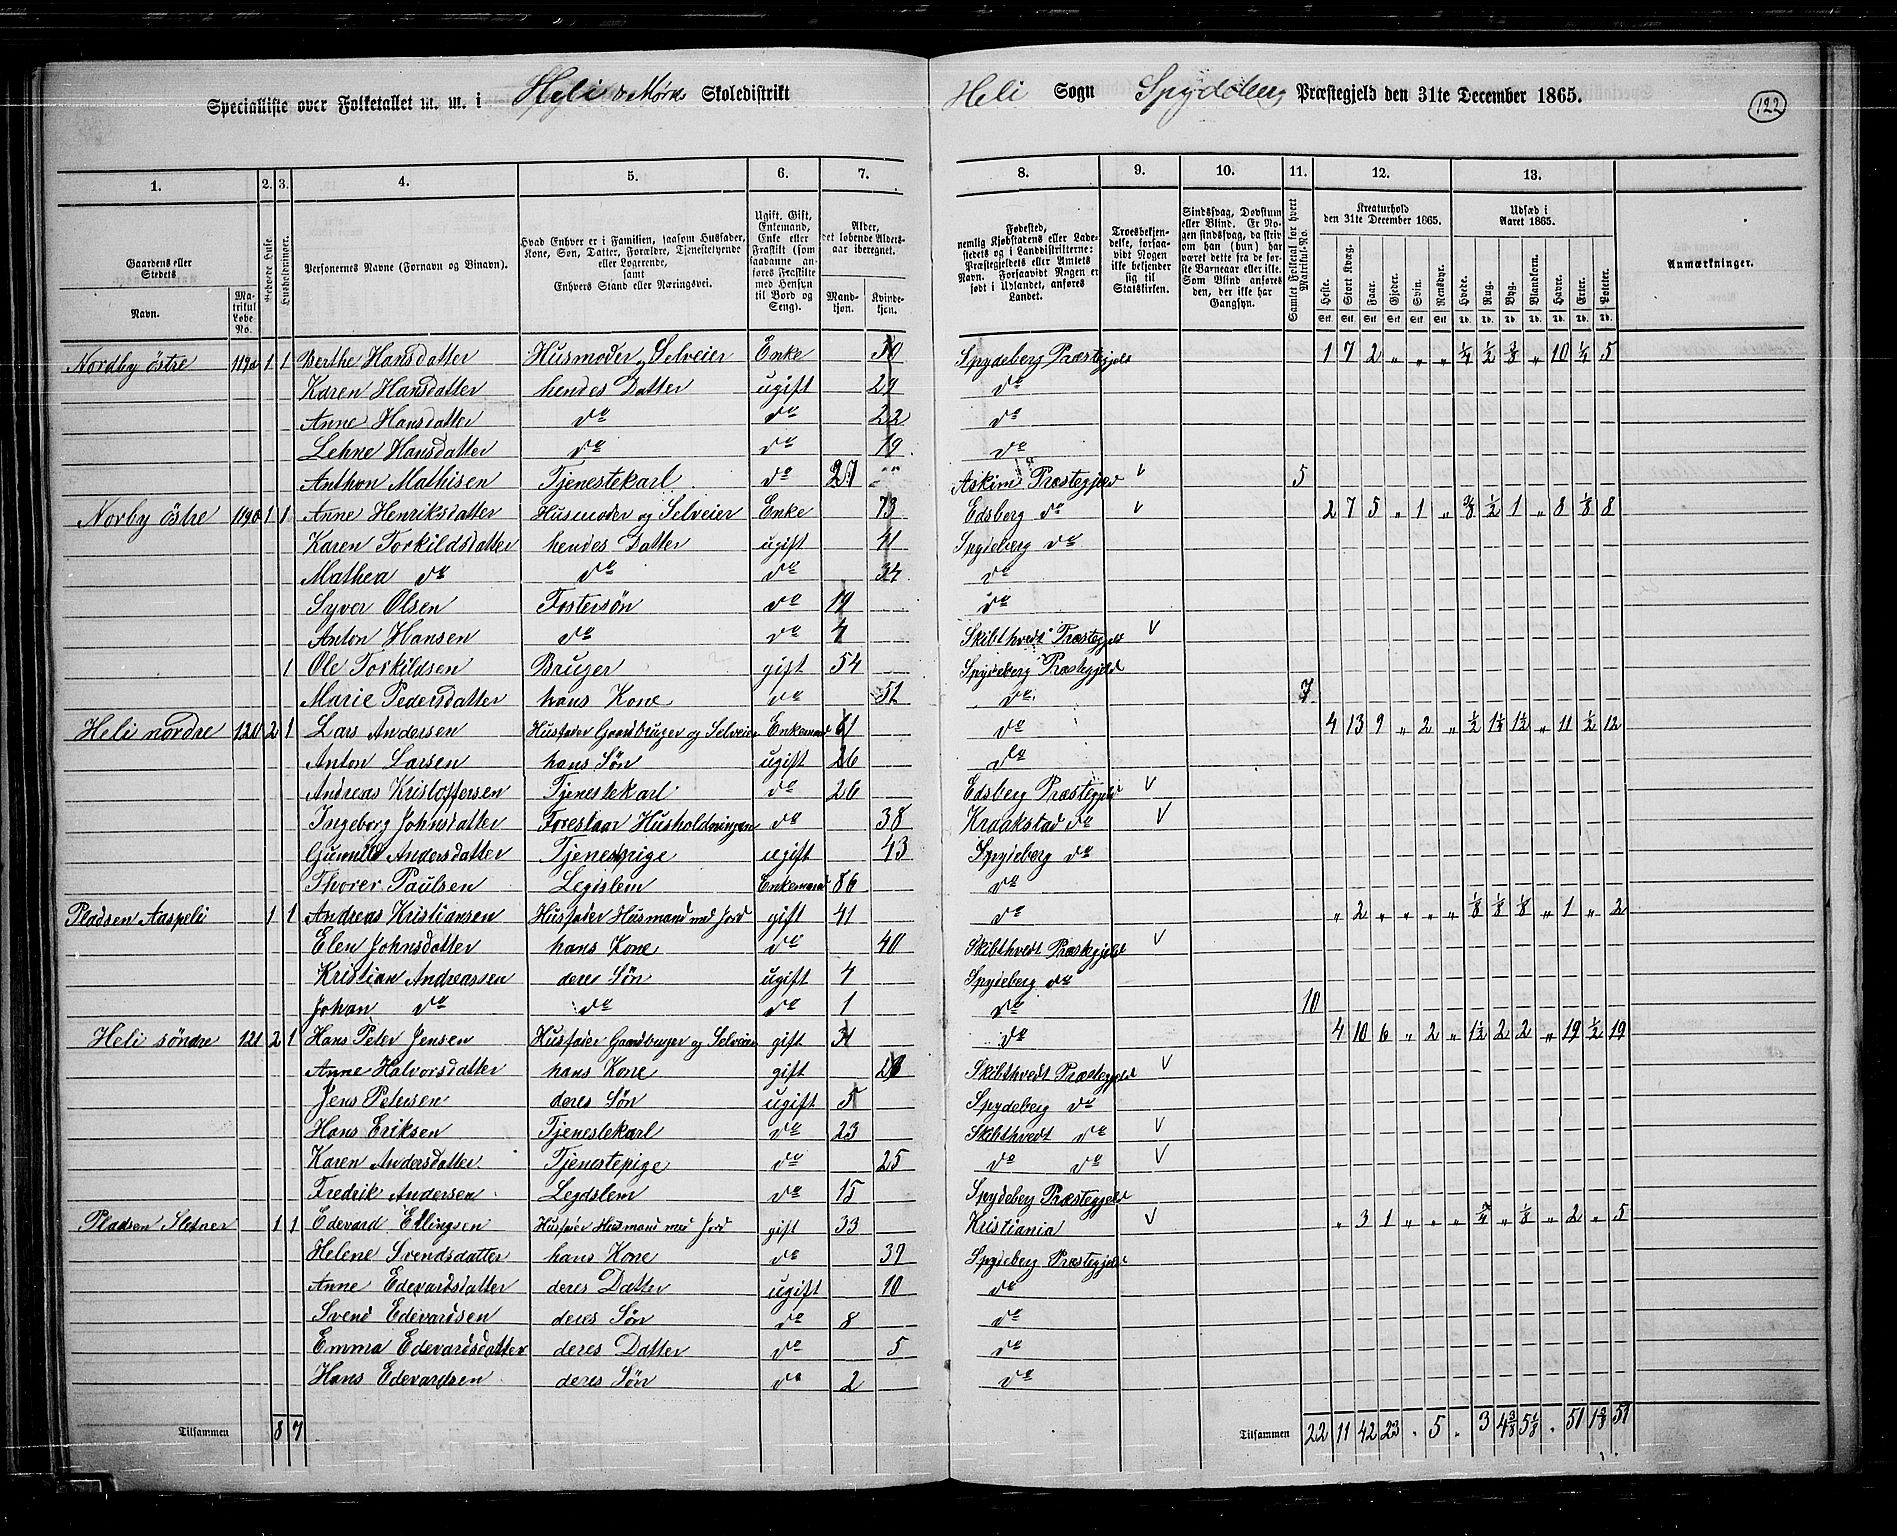 Specialliste over Folketallet m. m. i Heli & Mørk Skoledistrikt Heli Sogn Spydeberg Præstegjeld den 31te December 1865. 122
1. 2. 3. 4. 5. 6. 7. 8. 9. 10. 11. 12. 13.
Gaardens eller Stedets
Navn.
Matrikul Løbe No.
Beboede Huse.
Husholdninger.
Personernes Navne (Fornavn og Binavn).
Hvad Enhver er i Familien, saasom Husfader, Kone, Søn, Datter, Forældre, Tjenestetyende eller Logerende, samt Enhvers Stand eller Næringsvei.
Ugift, Gift, Enkemand, Enke eller Fraskilt (som saadanne anføres Fraskilte med Hensyn til Bord og Seng).
Alder, det løbende Aldersaar iberegnet.
Mandkjøn. Kvindekjøn.
Fødested, nemlig Kjøbstadens eller Ladestedets og i Landdistrikterne: Præstegjeldets eller Amtets Navn. Forsaavidt Nogen er født i Udlandet, anføres Landet.
Troesbekjendelse, forsaavidt Nogen ikke bekjender sig til Statskirken.
Sindssvag, Døvstum eller Blind. Er Nogen sindssvag, da skrives om han (hun) har været dette fra de første Barneaar eller ikke. Som Blind anføres den, der ikke har Gangsyn.
Samlet Folketal for hvert Matrikul-No.
Kreaturhold den 31te December 1865.
Heste. Stort Kvæg. Faar. Gjeder. Svin. Rensdyr.
Udsæd i Aaret 1865.
Hvede. Rug. Byg. Blandkorn. Havre. Erter. Poteter.
Anmærkninger.
Nordby östre 119a 1 1 Berthe Hansdatter Husmoder og Selveier Enke 50 Spydeberg Præstegjeld 1 7 2 " " " 1/4 1/2 3/8 " 10 1/4 5
Karen Hansdatter hendes Datter ugift 29 do
Anne Hansdatter do do 22 do
Lehne Hansdatter do do 19 do
Anthon Mathisen Tjenestekarl do 27 " Askim Præstegjeld v 5
Norby östre 119b 1 1 Anne Henriksdatter Husmoder og Selveier Enke 73 Edsberg do v 2 7 5 " 1 " 3/8 1/2 1 " 8 1/8 8
Karen Torkildsdatter hendes Datter ugift 41 Spydeberg do
Mathea do do do 34 do
Syver Olsen Fostersøn do 19 do
Anton Hansen do do 4 Skibthvedt Præstegjeld v
1 Ole Torkildsen Bruger gift 54 Spydeberg Præstegjeld
Marie Pedersdatter hans Kone do 52 do 7
Heli nordre 120 2 1 Lars Andersen Husfader Gaardbruger og Selveier Enkemand 61 do 4 13 9 " 2 " 1/2 1 1/2 1 1/2 " 11 1/2 12
Anton Larsen hans Søn ugift 26 do
Andreas Kristoffersen Tjenestekarl do 26 Edsberg Præstegjeld v
Ingeborg Johnsdatter Forestaar Husholdningen do 38 Kraakstad do v
Gunnild Andersdatter Tjenestpige ugift 43 Spydeberg do
Thorer Paulsen Legdslem Enkemand 86 do
Pladsen Aaspeli 1 1 Andreas Kristiansen Husfader Husmand med Jord gift 41 do " 2 " " " " 1/8 1/8 1/8 " 1 " 2
Elen Johnsdatter hans Kone do 40 Skibthvedt Præstegjeld v
Kristian Andreassen deres Søn ugift 4 Spydeberg do
Johan do do do 1 do 10
Heli söndre 121 2 1 Hans Peter Jensen Husfader Gaardbruger og Selveier gift 31 do 4 10 6 " 2 " 1 1/2 2 2 " 19 1/2 19
Anne Halvorsdatter hans Kone gift 28 Skibthvedt Præstegjeld v
Jens Petersen deres Søn ugift 5 Spydeberg do
Hans Eriksen Tjenestekarl do 23 Skibthvedt do v
Karen Andersdatter Tjenestepige do 25 do do v
Fredrik Andersen Legdslem do 15 Spydeberg Præstegjeld
Pladsen Sletner 1 1 Edevard Ellingsen Husfader Husmand med Jord gift 33 Kristiania v " 3 1 " " " 1/4 " 1/8 " 2 " 5
Helene Svendsdatter hans Kone do 37 Spydeberg Præstegjeld
Anne Edevardsdatter deres Datter ugift 10 do
Svend Edevardsen deres Søn do 8 do
Emma Edevardsdatter deres Datter do 5 do
Hans Edevardsen deres Søn do 2 do
Tilsammen 8 7 Tilsammen 22 11 42 23 " 5 " 3 4 3/8 5 1/8 " 51 1 3/8 51